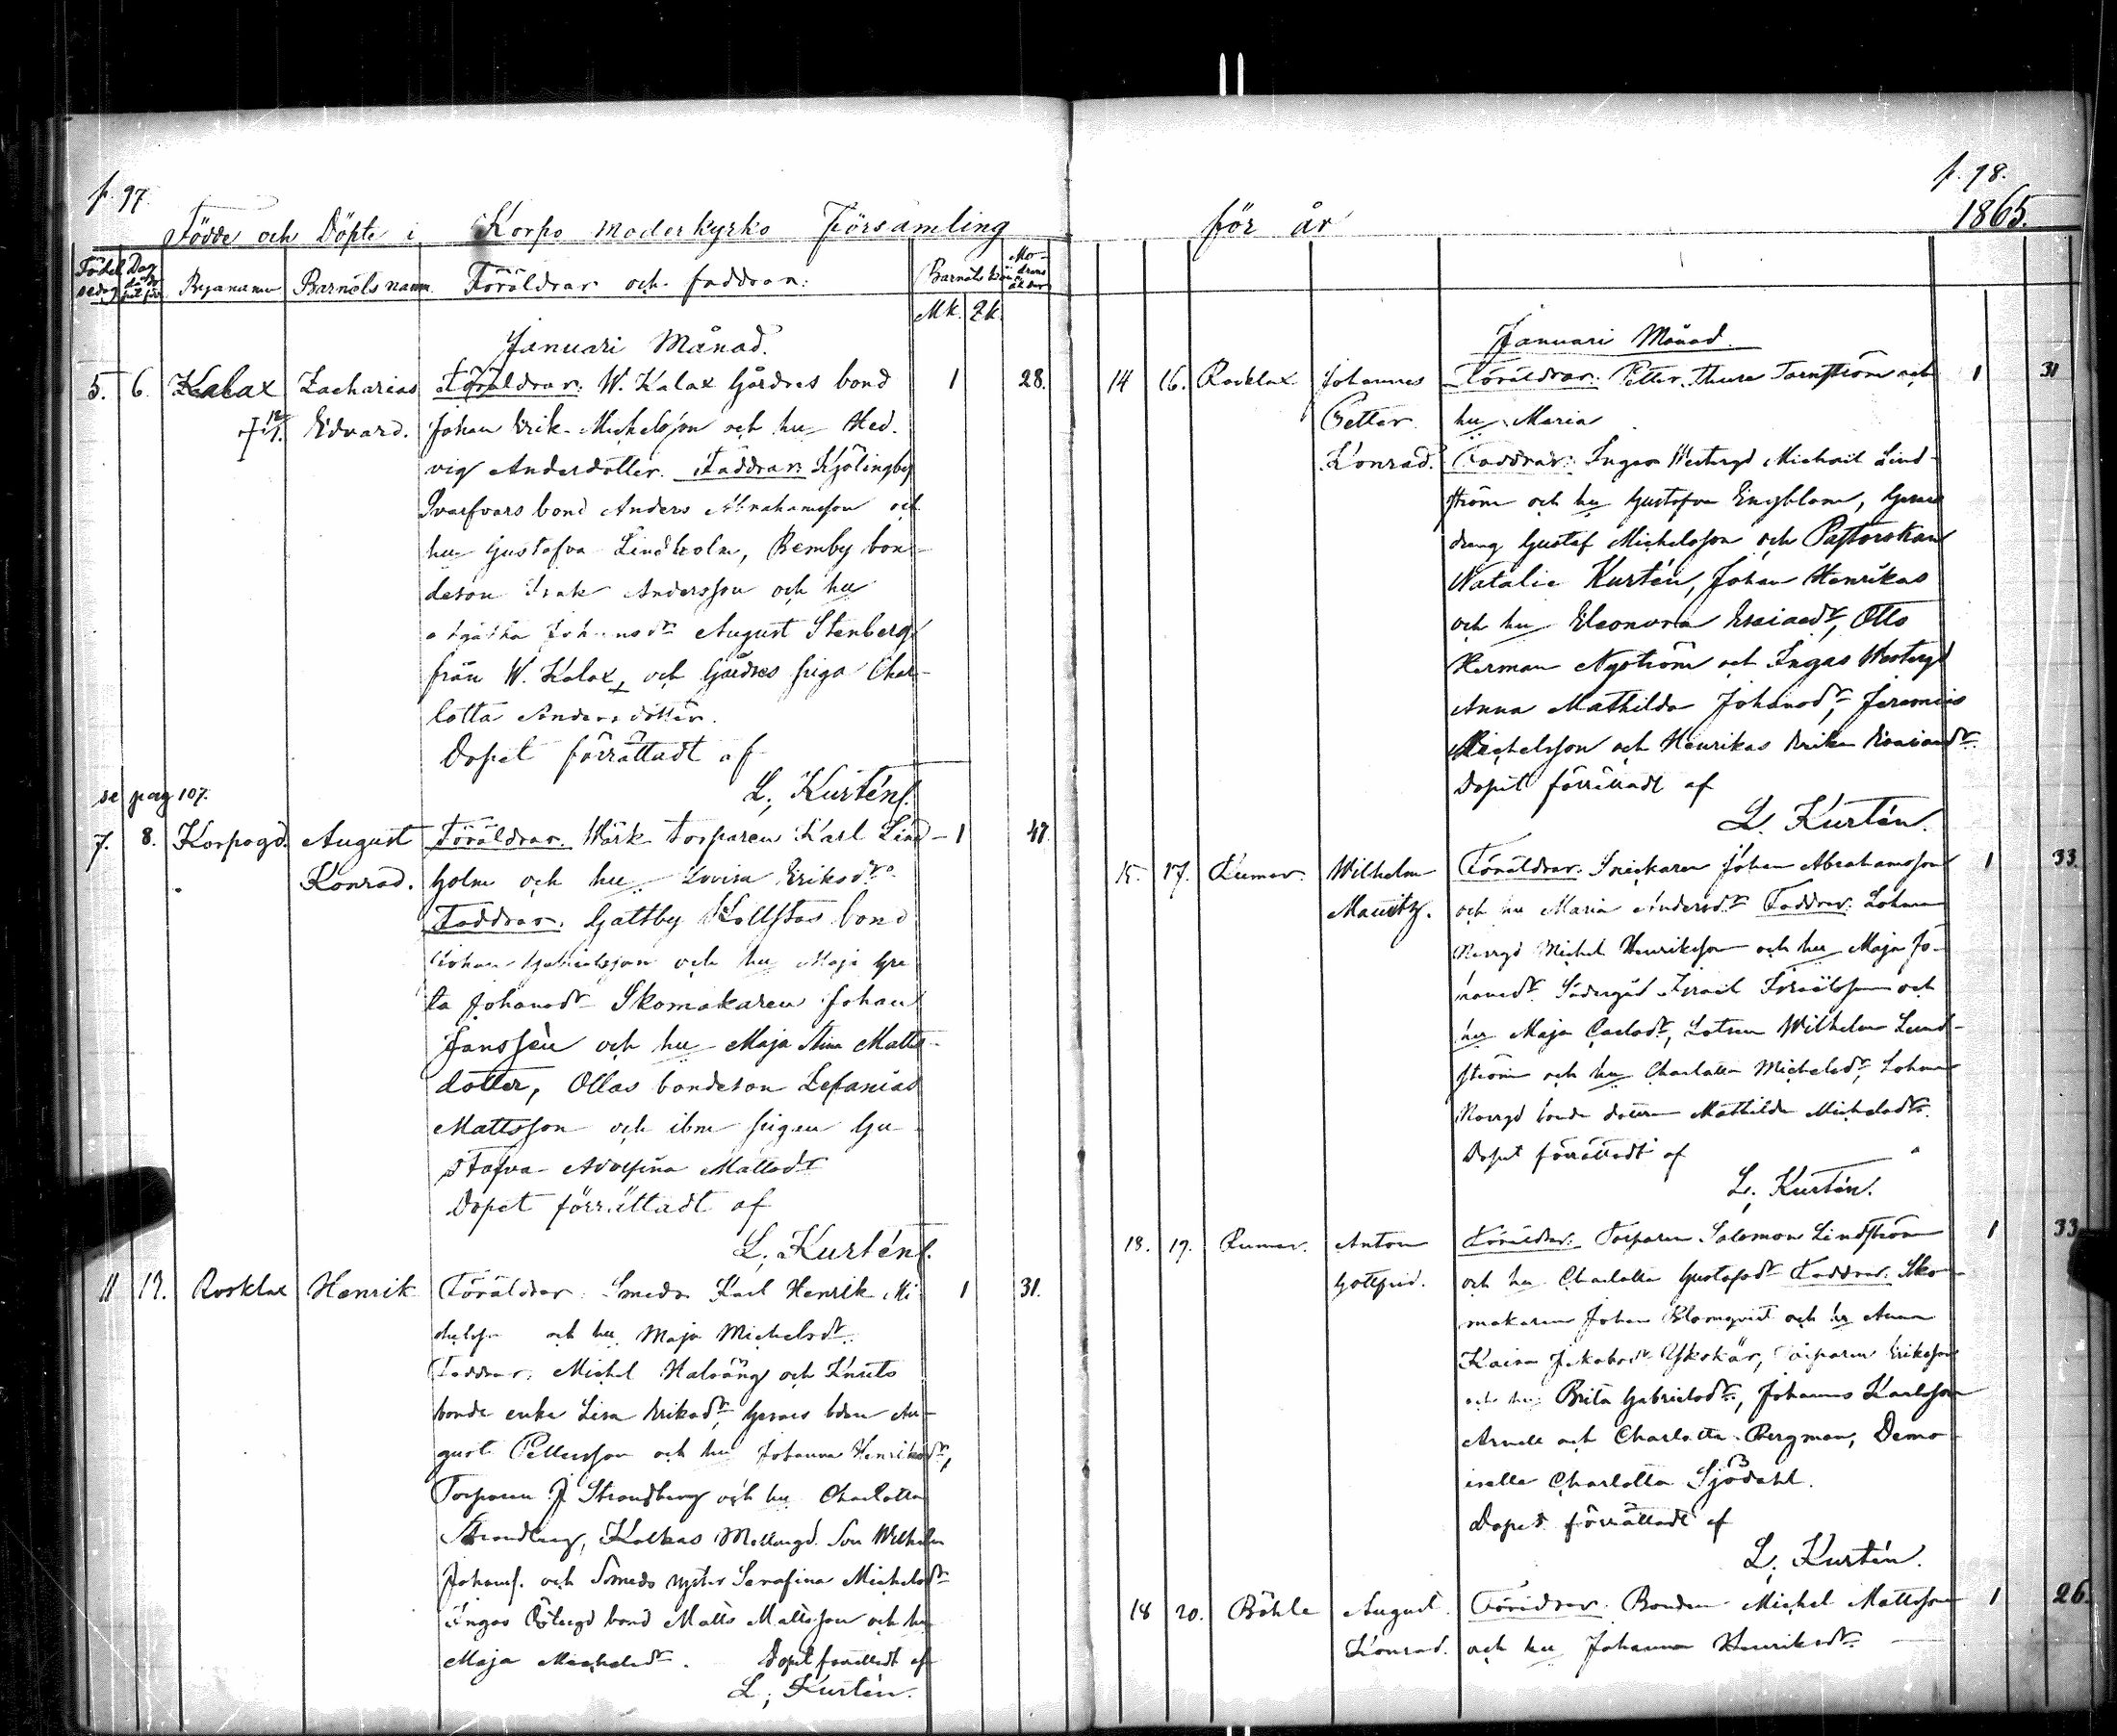 p. 97.
Födde och Döpte i Korpo moderkyrko Församling
Födel sedag Dag Byanamn Barnets namn Föräldrar och faddrar: Barnets kön Mo- drens ålder
Mk. Qk.
Januari Månad.
5. 6. Kalax Zacharias Föräldrar: W. Kalax Gårdres bond 1 28.
Edvard. Johan Erik Michelsson och hu Hed-
vig Andersdotter. Faddrar: Kjölingby
Svarfvars bond Anders Abrahamsson och
hu Gustafva Lindholm, Remby bon-
deson Isak Andersson och hu
Agatha Johansdr August Stenberg
från W. Kalax, och Gårdres piga Char-
lotta Andersdotter.
Dopet förrättadt af
L. Kurtén.
se pag 107.
7. 8. Korpogd. August Föräldrar. Wärk torparen Karl Lind- 1 47.
Konrad. holm och hu Lovisa Eriksdr
Faddrar. Gattby bond
Johan Gabrielsson och hu Maja Gre
ta Johansdr Skomakaren Johan
Janssén och hu Maja Stina Matts-
dotter, Ollas bondeson Zefanias
Mattsson och ibm pigen Gu-
stafva Adolfina Mattsdr
Dopet förrättadt af
L. Kurtén.
11 13. Rosklax Henrik Föräldrar: Smeden Karl Henrik Mi 1 31.
chelsson och hu Maja Michelsdr.
Faddrar: Michel Halväng och Knuts
bonde enka Lisa Eriksdr, Gerars bdn Au-
gust Pettersson och hu Johanna Henriksdr,
Torparen J. Strandberg och hu Charlotta
Strandberg, Kalkas Mellangd. Son Wilhelm
Johans. och Smeds syster Serafina Michelsdr
Ingas Östergd bond Matts Mattsson och hu
Maja Michelsdr. Dopet förrättadt af
L. Kurtén.
p. 98.
för år 1865.
Januari Månad.
14 16. Rosklax Johannes Föräldrar: Petter Thure Törnström och 1 31
Petter hu Maria
Konrad. Faddrar: Ingas Westergd Michael Lind-
ström och hu Gustafva Engblom, Gerars
dräng Gustaf Michelsson och Pastorskan
Natalie Kurtén, Johan Henrikas
och hu Eleonora Esaiaedr, Otto
Herman Nyström och Ingas Westergd
Anna Mathilda Johansdr, Jeremias
Michelsson och Henrikas Erika Esaiaedr.
Dopet förrättadt af
L. Kurtén.
15. 17. Rumar. Wilhelm Föräldrar: Snickaren Johan Abrahamsson 1 33.
Mauritz. och hu Maria Andersdr Faddrar: Lohm
Norrgd Michel Henriksson och hu Maja Jo-
hansdr Södergd Israel Israelsson och
hu Maja Carlsdr, Lotsen Wilhelm Lund-
ström och hu Charlotta Michelsdr, Lohm
Norrgd bonde dottren Mathilda Michelsdr.
Dopet förrättadt af
L. Kurtén.
18. 19. Rumar. Anton Föräldrar: Torparen Salomon Lindström 1 33
Gottfrid. och hu Charlotta Gustafsdr Faddrar: Sko-
makaren Johan Blomqvist och hu Anna
Kaisa Jakobsdr Torparen Eriksson
och hu Brita Gabrielsdr, Johannes Karlsson
och Charlotta Bergman, Demo-
iselle Charlotta Sjödahl.
Dopet förrättadt af
L. Kurtén.
18 20. Böhle August Föräldrar. Bonden Michel Mattsson 1 26.
Konrad. och hu Johanna Henriksdr